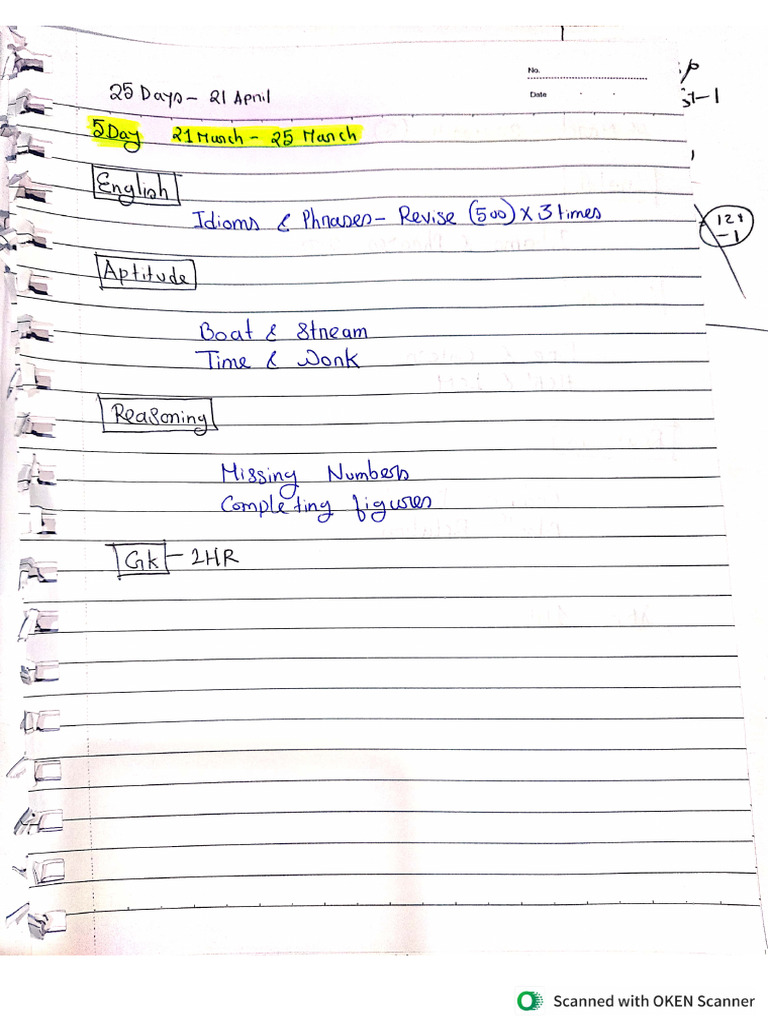 No.
Date
25 Days - 21 April
5 Day 21 March - 25 March
English
Idioms & Phrases - Revise (500) x 3 times
Aptitude
Boat & Stream
Time & Work
Reasoning
Missing Numbers
Completing figures
Gk - 2HR
-1
Scanned with OKEN Scanner